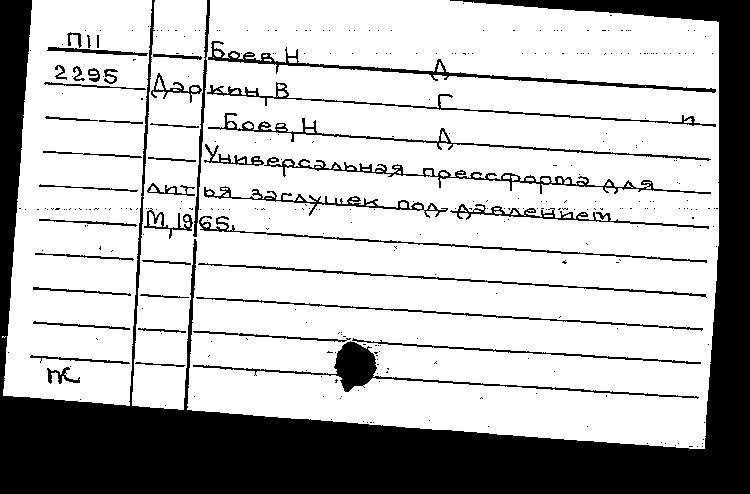 П11
Боев, Н Д
2295
Даркин, В Г и
Боев, Н Д
Универсальная прессформа для
литья заглушек под давлением.
М, 1965.
пс